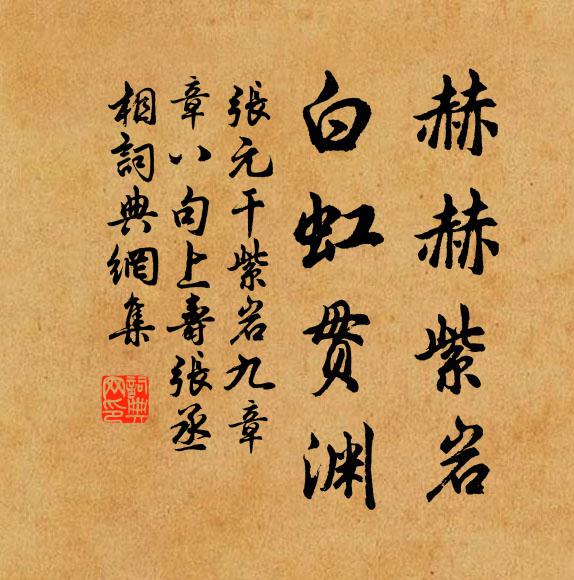 赫赫紫岩
白虹贯渊
張元干紫岩九章
章八句上壽張丞
相詞典網集
詞典网印